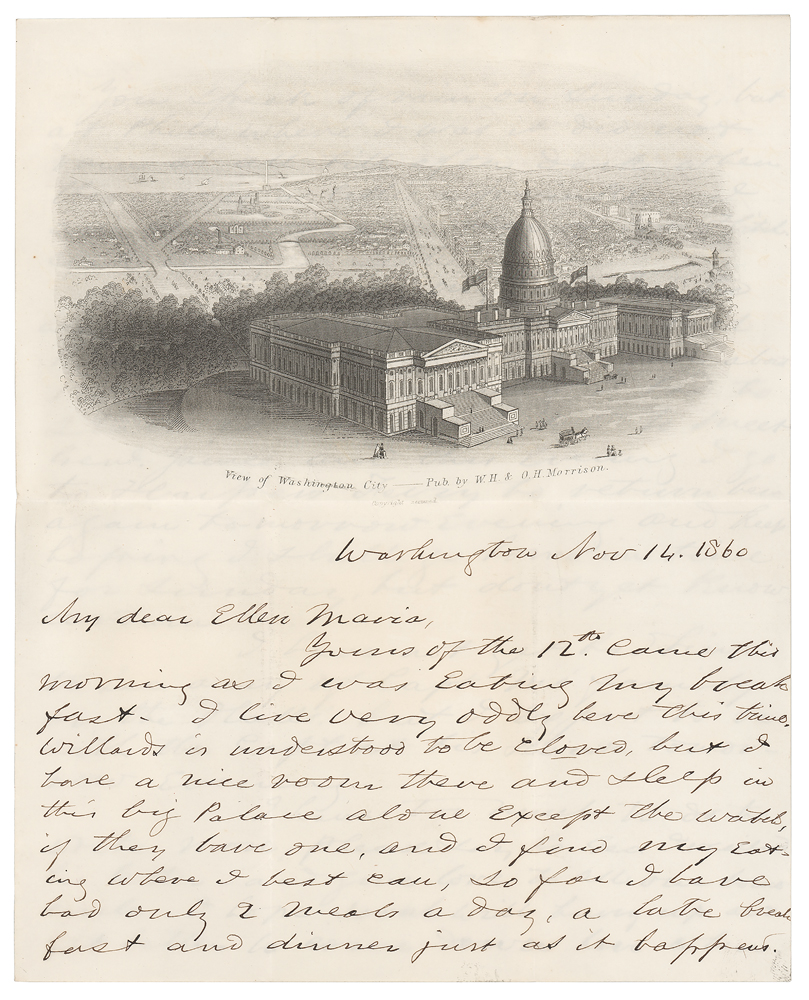 View of Washington City — Pub. by W.H. & O.H. Morrison.
Washington Nov 14. 1860
My dear Ellen Maria,
Yours of the 12th. Came this
morning as I was Eating my break
fast - I live very oddly here this time.
Willards is understood to be closed, but I
have a nice room there and sleep in
this big Palace alone Except the watch,
if they have one, and I find my Eat-
ing where I best can, so far I have
had only 2 meals a day, a late break
fast and dinner just as it happens.